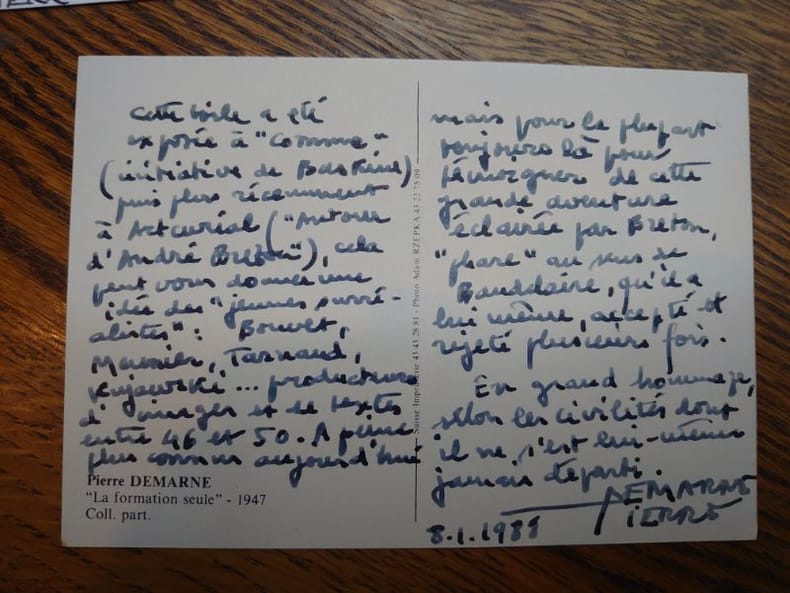 cette toile a été
exposée à "Comme"
(initiative de Baskine)
puis plus récemment
à Artcurial ("Autour
d'André Breton"), cela
peut vous donner une
idée des "jeunes surré-
alistes" : Bouvet,
Meunier, Tarnaud,
Kujawski... producteurs
d'images et de textes
entre 46 et 50. A peine
plus connus aujourd'hui
Pierre DEMARNE
"La formation seule" - 1947
Coll. part.
Suisse Imprimerie 43 43 28 81 - Photo Adam RZEPKA 43 22 75 09
mais pour la plupart
toujours là pour
témoigner de cette
grande aventure
éclairée par Breton,
"phare" au sens de
Baudelaire, qu'il a
lui même, accepté et
rejeté plusieurs fois.
En grand hommage,
selon les civilités dont
il ne s'est lui-même
jamais départi.
DEMARNE
PIERRE
8.1.1988